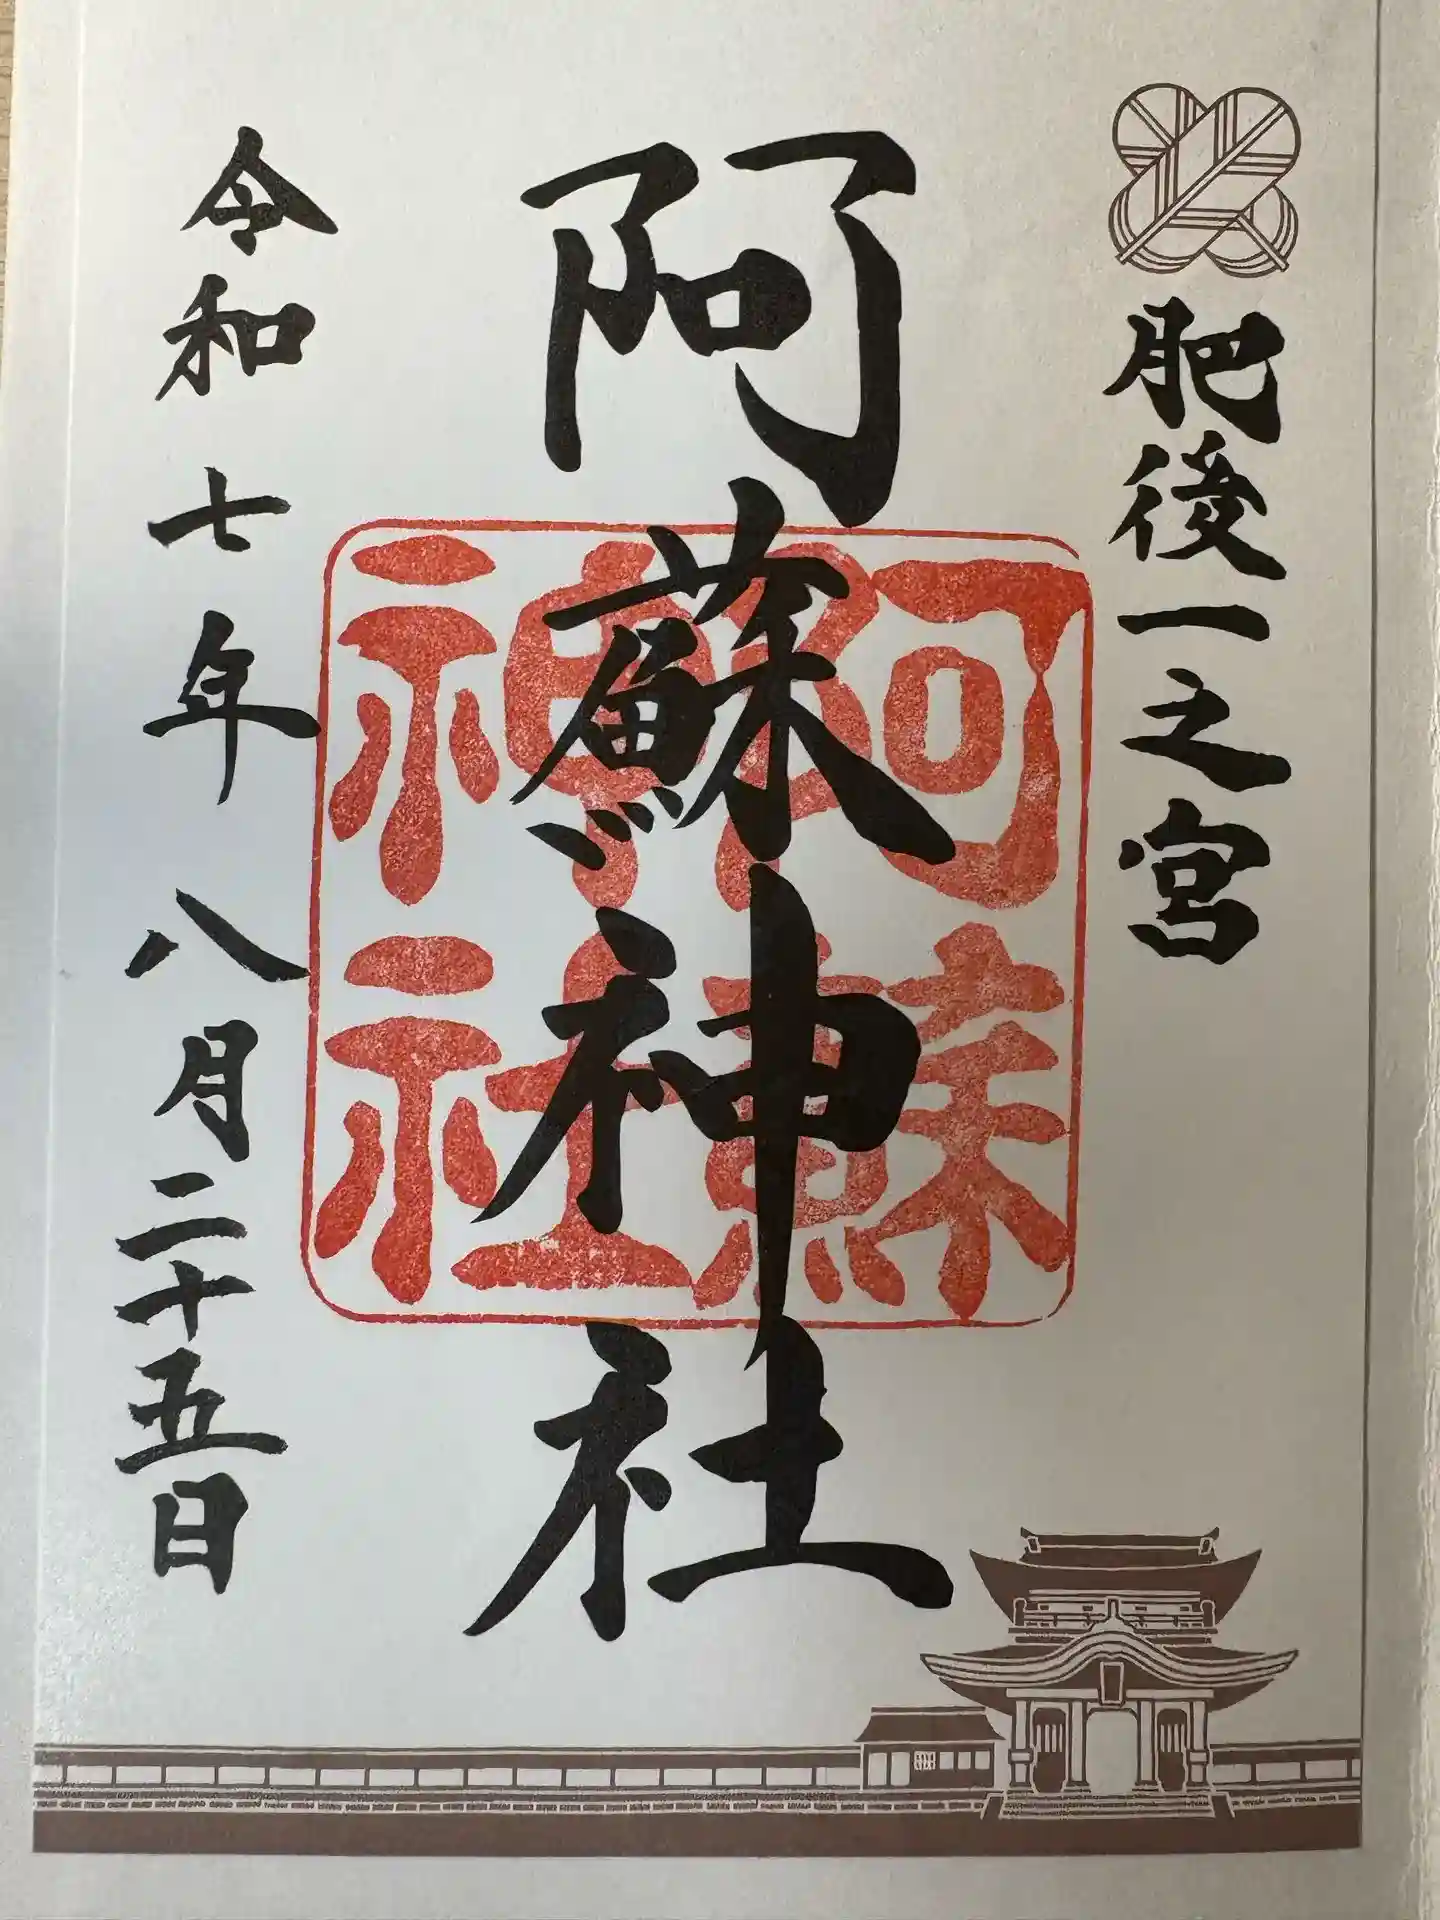 肥後一之宮
阿蘇神社
阿蘇
神社
令和七年八月二十五日